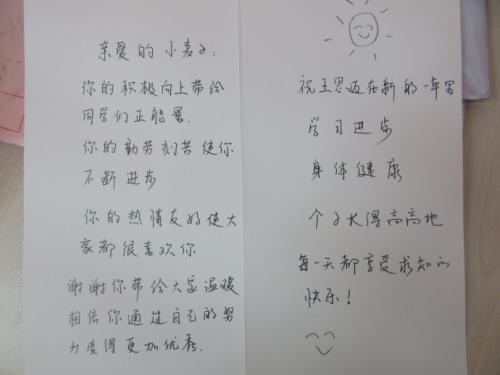 亲爱的小麦子:
你的积极向上带给
同学们正能量.
你的勤劳刻苦使你
不断进步
你的热情友好使大
家都很喜欢你
谢谢你带给大家温暖
相信你通过自己的努
力变得更加优秀.
祝王思迈在新的一年里
学习进步
身体健康
个子长得高高地
每一天都享受求知的
快乐!